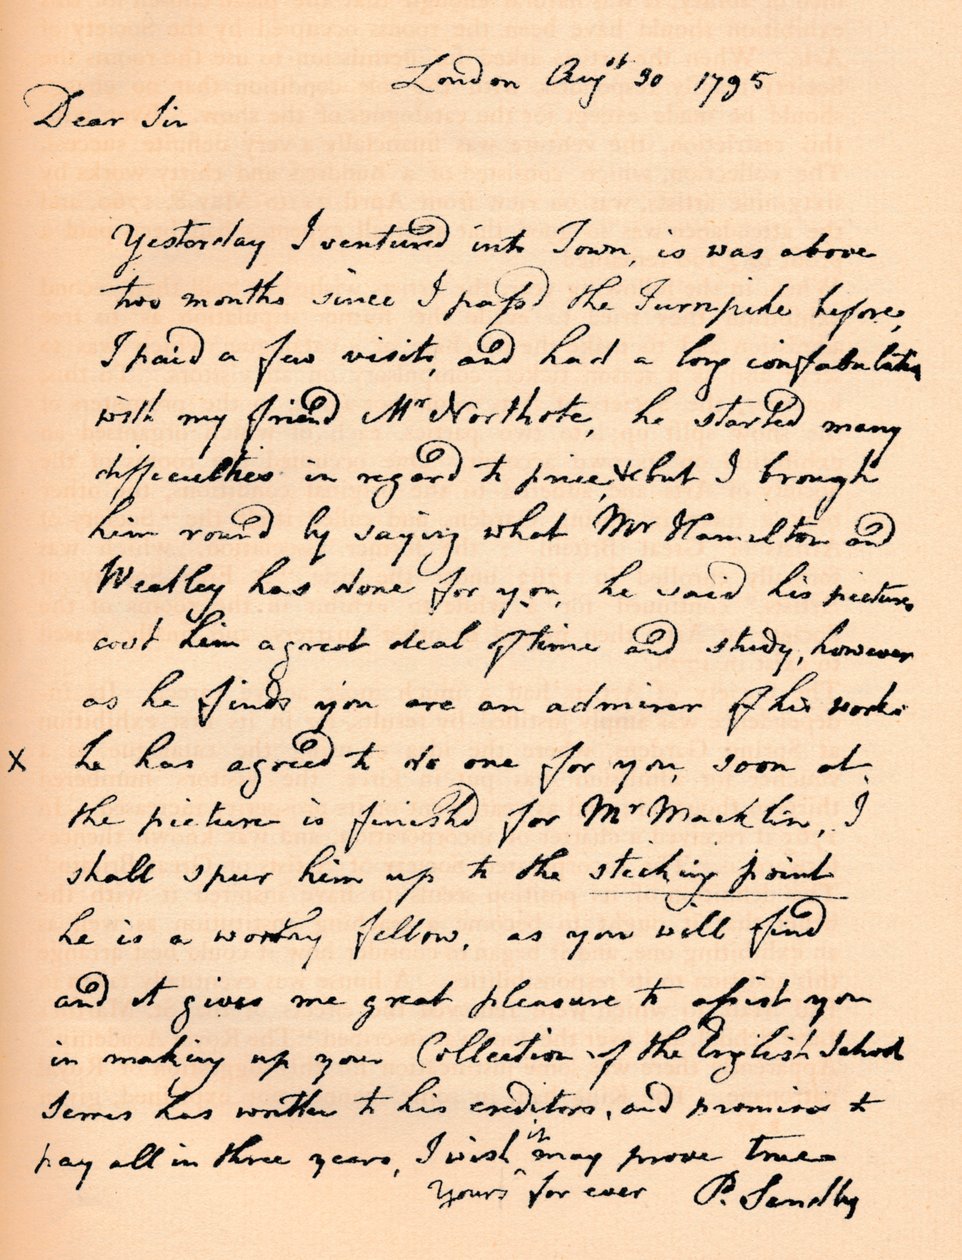 London Augst 30 1795
Dear Sir
Yesterday I ventured into Town, is was above
two months since I pass'd the Turnpike before,
I paid a few visits, and had a long confabulation
with my friend Mr Northote, he started many
difficulties in regard to price, & but I brough
him round by saying what Mr Hamilton and
Weatley has done for you, he said his pictures
cost him a great deal of time and study, however
as he finds you are an admirer of his works
x he has agreed to do one for you, soon as
the picture is finishd for Mr Macklin, I
shall spur him up to the sticking point
he is a worthy fellow, as you will find
and it gives me great pleasure to assist you
in making up your Collection of the English School
Serres has written to his creditors, and promises to
pay all in three years, I wish ^it may prove true
yours for ever P. Sandby